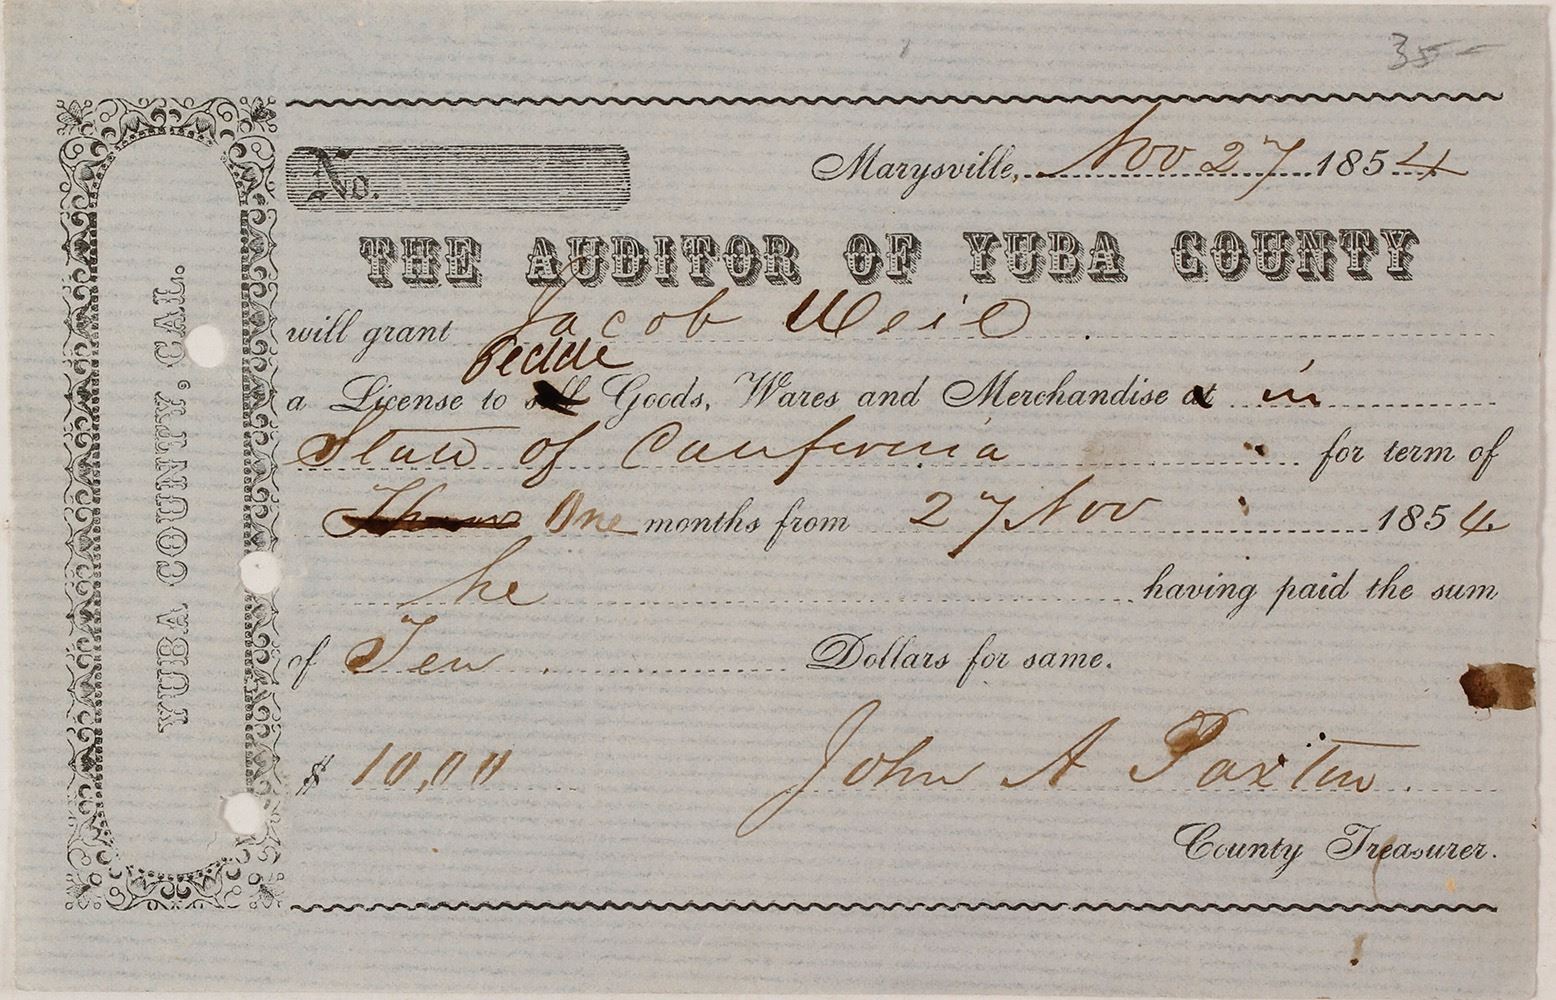 35-
No.
Marysville, Nov 27 1854
THE AUDITOR OF YUBA COUNTY
will grant Jacob Weil
Peddle
a License to sell Goods, Wares and Merchandise at in
State of California for term of
Three One months from 27 Nov 1854
he having paid the sum
of Ten Dollars for same.
$ 10,00 John A Paxton
County Treasurer.
YUBA COUNTY, CAL.